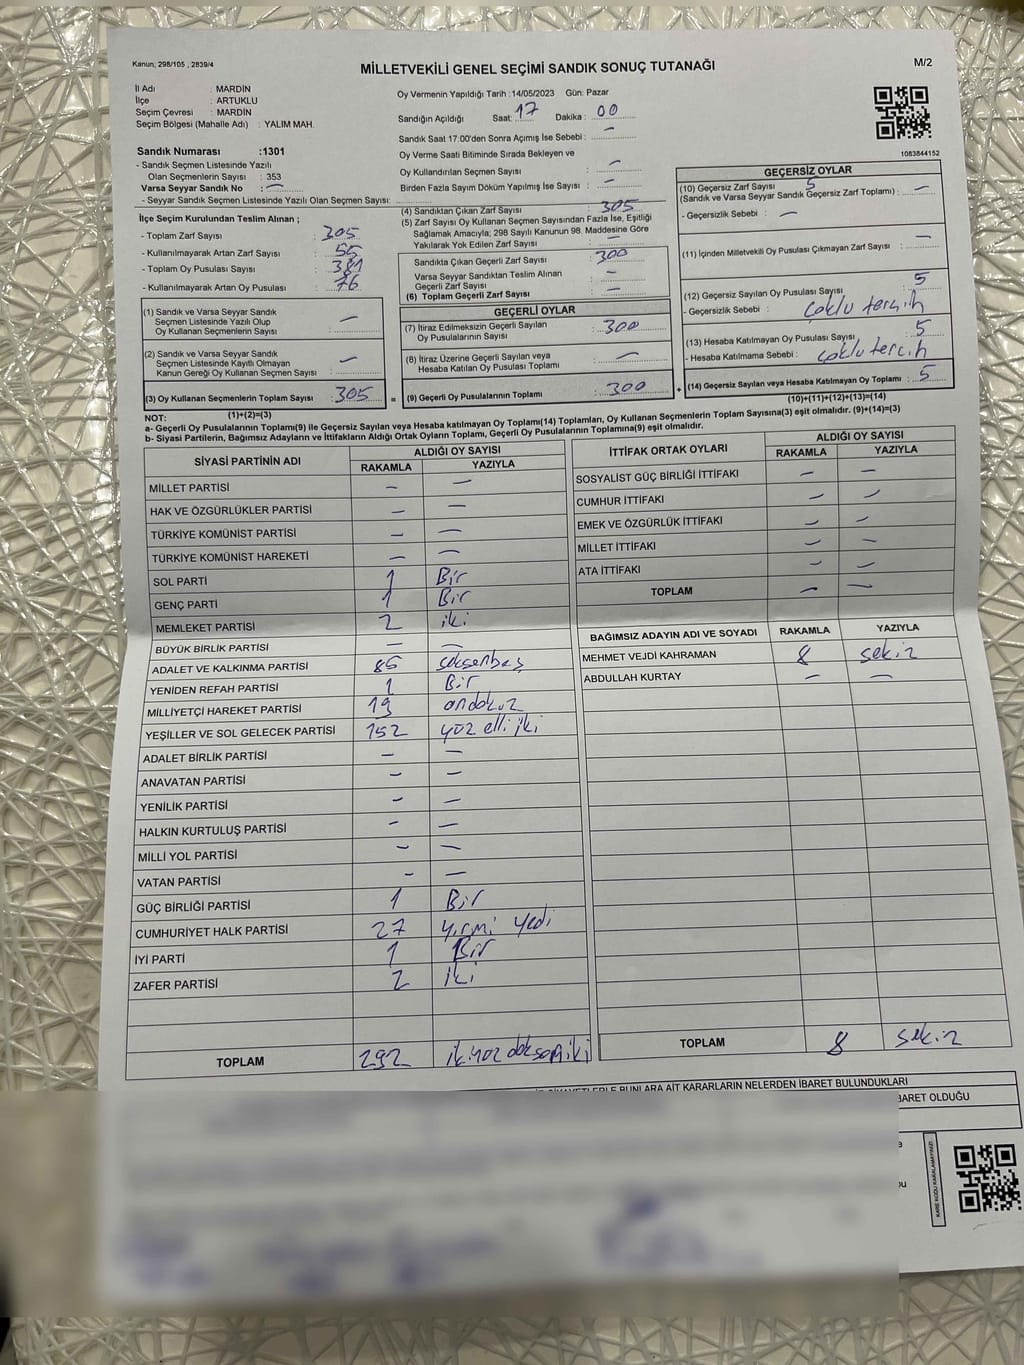 Kanun; 298/105 , 2839/4
MİLLETVEKİLİ GENEL SEÇİMİ SANDIK SONUÇ TUTANAĞI
M/2
İl Adı : MARDİN
İlçe : ARTUKLU
Seçim Çevresi : MARDİN
Seçim Bölgesi (Mahalle Adı) : YALIM MAH.
Sandık Numarası :1301
- Sandık Seçmen Listesinde Yazılı
Olan Seçmenlerin Sayısı : 353
Varsa Seyyar Sandık No : —
- Seyyar Sandık Seçmen Listesinde Yazılı Olan Seçmen Sayısı:
Oy Vermenin Yapıldığı Tarih :14/05/2023 Gün: Pazar
Sandığın Açıldığı Saat: 17 Dakika : 00
Sandık Saat 17:00'den Sonra Açımış İse Sebebi : —
Oy Verme Saati Bitiminde Sırada Bekleyen ve
Oy Kullandırılan Seçmen Sayısı : —
Birden Fazla Sayım Döküm Yapılmış İse Sayısı : —
1083844152
İlçe Seçim Kurulundan Teslim Alınan ;
- Toplam Zarf Sayısı : 305
- Kullanılmayarak Artan Zarf Sayısı : 55
- Toplam Oy Pusulası Sayısı : 381
- Kullanılmayarak Artan Oy Pusulası : 76
(1) Sandık ve Varsa Seyyar Sandık
Seçmen Listesinde Yazılı Olup
Oy Kullanan Seçmenlerin Sayısı : —
(2) Sandık ve Varsa Seyyar Sandık
Seçmen Listesinde Kayıtlı Olmayan
Kanun Gereği Oy Kullanan Seçmen Sayısı : —
(3) Oy Kullanan Seçmenlerin Toplam Sayısı : 305
(1)+(2)=(3)
(4) Sandıktan Çıkan Zarf Sayısı : 305
(5) Zarf Sayısı Oy Kullanan Seçmen Sayısından Fazla İse, Eşitliği
Sağlamak Amacıyla; 298 Sayılı Kanunun 98. Maddesine Göre
Yakılarak Yok Edilen Zarf Sayısı : —
Sandıkta Çıkan Geçerli Zarf Sayısı : 300
Varsa Seyyar Sandıktan Teslim Alınan
Geçerli Zarf Sayısı : —
(6) Toplam Geçerli Zarf Sayısı : —
GEÇERLİ OYLAR
(7) İtiraz Edilmeksizin Geçerli Sayılan
Oy Pusulalarının Sayısı : 300
(8) İtiraz Üzerine Geçerli Sayılan veya
Hesaba Katılan Oy Pusulası Toplamı : —
= (9) Geçerli Oy Pusulalarının Toplamı : 300
GEÇERSİZ OYLAR
(10) Geçersiz Zarf Sayısı 5
(Sandık ve Varsa Seyyar Sandık Geçersiz Zarf Toplamı) : —
- Geçersizlik Sebebi : —
(11) İçinden Milletvekili Oy Pusulası Çıkmayan Zarf Sayısı : —
(12) Geçersiz Sayılan Oy Pusulası Sayısı : 5
- Geçersizlik Sebebi : Çoklu tercih
(13) Hesaba Katılmayan Oy Pusulası Sayısı : 5
- Hesaba Katılmama Sebebi : çoklu tercih
+ (14) Geçersiz Sayılan veya Hesaba Katılmayan Oy Toplamı : 5
(10)+(11)+(12)+(13)=(14)
NOT:
a- Geçerli Oy Pusulaların Toplamı(9) ile Geçersiz Sayılan veya Hesaba katılmayan Oy Toplamı(14) Toplamları, Oy Kullanan Seçmenlerin Toplam Sayısına(3) eşit olmalıdır. (9)+(14)=(3)
b- Siyasi Partilerin, Bağımsız Adayların ve İttifakların Aldığı Ortak Oyların Toplamı, Geçerli Oy Pusulalarının Toplamına(9) eşit olmalıdır.
SİYASİ PARTİNİN ADI
ALDIĞI OY SAYISI
RAKAMLA YAZIYLA
MİLLET PARTİSİ — —
HAK VE ÖZGÜRLÜKLER PARTİSİ — —
TÜRKİYE KOMÜNİST PARTİSİ — —
TÜRKİYE KOMÜNİST HAREKETİ — —
SOL PARTİ 1 Bir
GENÇ PARTİ 1 Bir
MEMLEKET PARTİSİ 2 iki
BÜYÜK BİRLİK PARTİSİ — —
ADALET VE KALKINMA PARTİSİ 85 seksenbeş
YENİDEN REFAH PARTİSİ 1 Bir
MİLLİYETÇİ HAREKET PARTİSİ 19 ondokuz
YEŞİLLER VE SOL GELECEK PARTİSİ 152 yüz elli iki
ADALET BİRLİK PARTİSİ — —
ANAVATAN PARTİSİ — —
YENİLİK PARTİSİ — —
HALKIN KURTULUŞ PARTİSİ — —
MİLLİ YOL PARTİSİ — —
VATAN PARTİSİ — —
GÜÇ BİRLİĞİ PARTİSİ 1 Bir
CUMHURİYET HALK PARTİSİ 27 yirmi yedi
İYİ PARTİ 1 Bir
ZAFER PARTİSİ 2 iki
TOPLAM 292 ikiyüz doksan iki
İTTİFAK ORTAK OYLARI
ALDIĞI OY SAYISI
RAKAMLA YAZIYLA
SOSYALİST GÜÇ BİRLİĞİ İTTİFAKI — —
CUMHUR İTTİFAKI — —
EMEK VE ÖZGÜRLÜK İTTİFAKI — —
MİLLET İTTİFAKI — —
ATA İTTİFAKI — —
TOPLAM — —
BAĞIMSIZ ADAYIN ADI VE SOYADI RAKAMLA YAZIYLA
MEHMET VEJDİ KAHRAMAN 8 sekiz
ABDULLAH KURTAY — —
TOPLAM 8 sekiz
BUNLARA AİT KARARLARIN NELERDEN İBARET BULUNDUKLARI
BARET OLDUĞU
KARE KODU KARALAMAYINIZ!